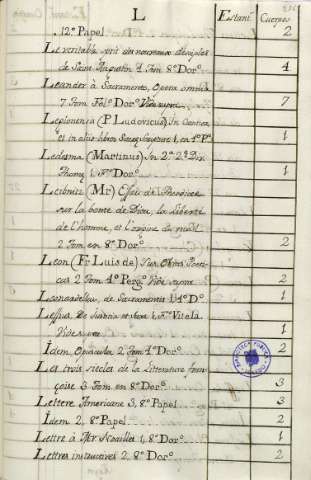 L Estant. Cuerpos
12º Papel 2
Le veritable esprit des nouveaux disciples
de Saint Augustin 4 Tom 8º Dorº 4
Leander à Sacramento, Opera omnia
7 Tom Folº Dorº Vide supra 7
(P. Ludovicus) In Cantica
et in alios libros Sacræ Scripturæ 1, en 4º Pº 1
Ledesma (Martinus) In 2ª 2æ Div.
Thomæ 1, Fº Dorº 1
Leibnitz (Mr) Essais de Theodicee
sur la bonté de Dieu, la liberté
de l'homme, et l'origine du mal
2 Tom en 8º Dorº 2
Leon (Fr Luis de) Sus Obras Poeti-
cas 2 Tom 4º Pergº Vide supra 2
de Sacramentis 1, 4º Dº 1
Lessius, De Justitia et Jure 1, Fº Vitela
Vide supra 1
Idem Opuscula 2 Tom 4º Dorº 2
Les trois siecles de la Litterature fran-
çoise 3 Tom en 8º Dorº 3
Lettere Americane 3, 8º Papel 3
Idem 2, 8º Papel 2
Lettre à Mr 1, 8º Dorº 1
Lettres instructives 2, 8º Dorº 2